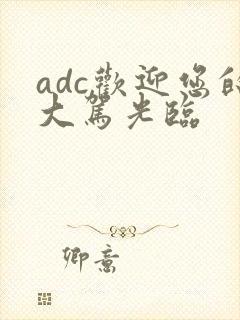 adc歡迎您的
大駕光臨
卿意